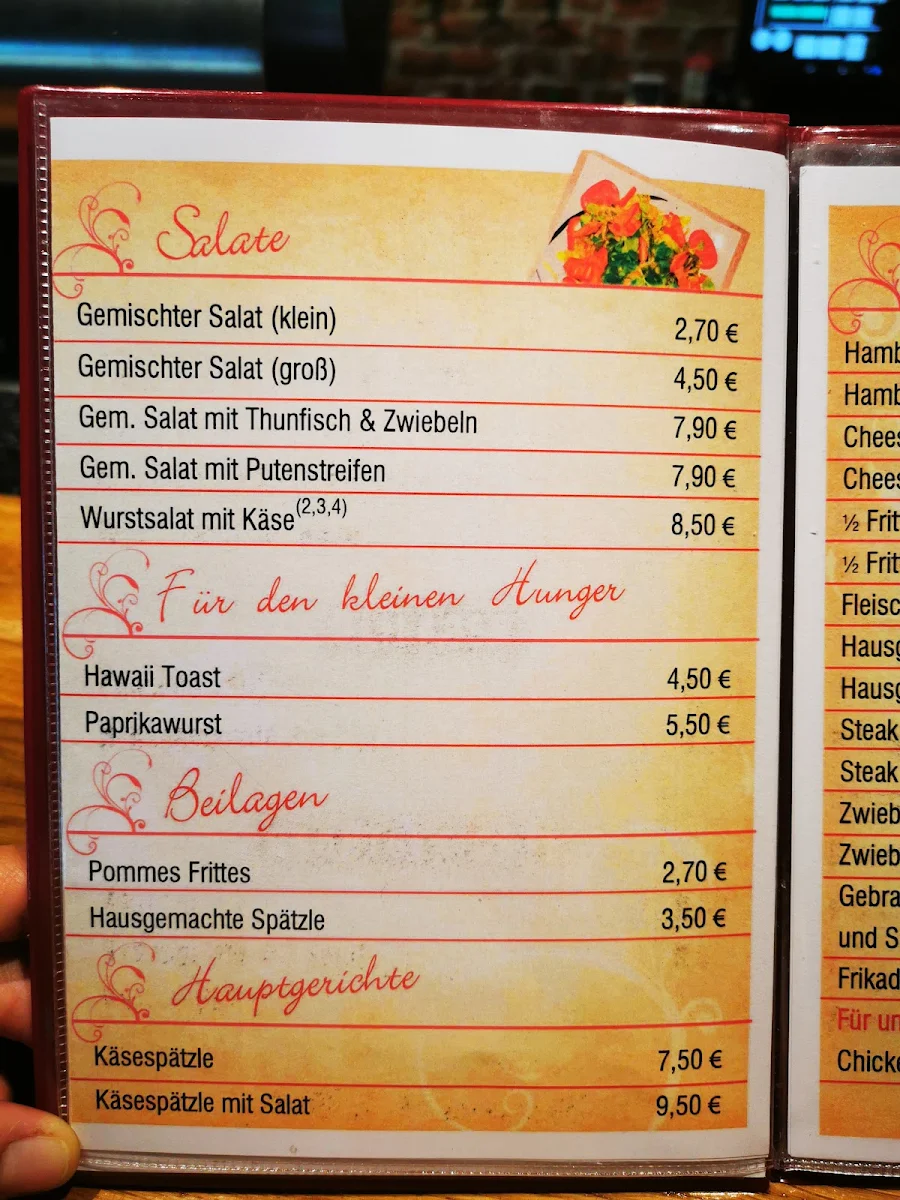 Salate
Gemischter Salat (klein) 2,70 €
Gemischter Salat (groß) 4,50 €
Gem. Salat mit Thunfisch & Zwiebeln 7,90 €
Gem. Salat mit Putenstreifen 7,90 €
Wurstsalat mit Käse(2,3,4) 8,50 €
Für den kleinen Hunger
Hawaii Toast 4,50 €
Paprikawurst 5,50 €
Beilagen
Pommes Frittes 2,70 €
Hausgemachte Spätzle 3,50 €
Hauptgerichte
Käsespätzle 7,50 €
Käsespätzle mit Salat 9,50 €
½
½
Steak
Steak
und
Für